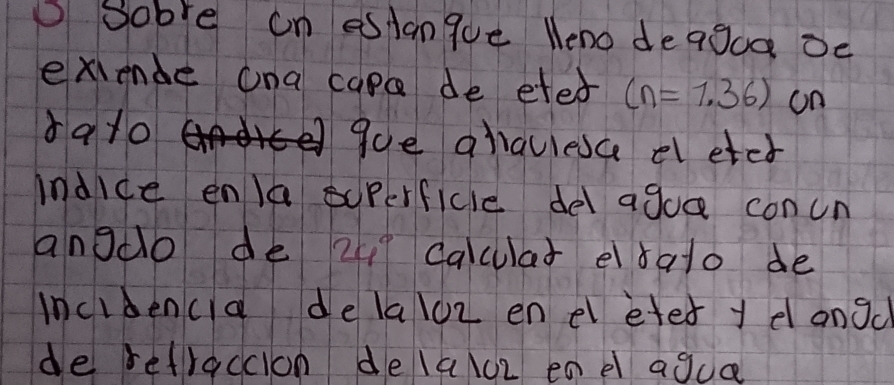 3 Sobre un estanque lleno de agua se
extiende una capa de eter (n=1.36) un
rayo que atraviesa el eter
indice en la superficie del agua con un
angulo de 24° calcular el rayo de
incidencia de la luz en el èter y el angul
de refraccion de la luz en el agua